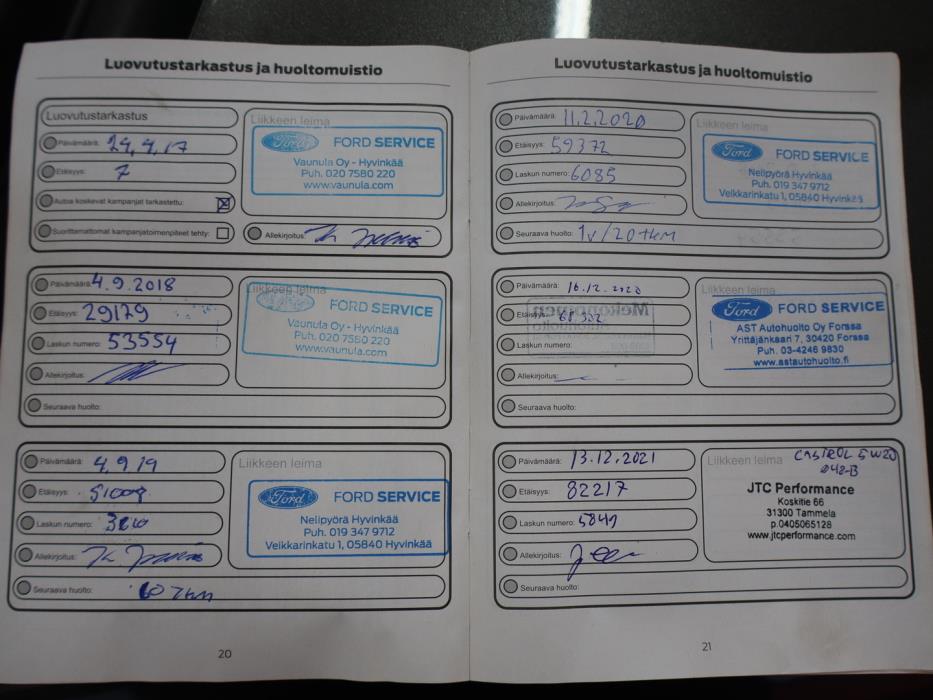 Luovutustarkastus ja huoltomuistio
Luovutustarkastus
Päivämäärä: 24.4.17
Etäisyys: 7
Autoa koskevat kampanjat tarkastettu:
Suorittamattomat kampanjatoimenpiteet tehty:
Liikkeen leima
Ford FORD SERVICE
Vaunula Oy - Hyvinkää
Puh. 020 7580 220
www.vaunula.com
Allekirjoitus:
Päivämäärä: 4.9.2018
Etäisyys: 29179
Laskun numero: 53554
Allekirjoitus:
Seuraava huolto:
Liikkeen leima
Ford FORD SERVICE
Vaunula Oy - Hyvinkää
Puh. 020 7580 220
www.vaunula.com
Päivämäärä: 4.9.19
Etäisyys:
Laskun numero:
Allekirjoitus:
Seuraava huolto:
Liikkeen leima
Ford FORD SERVICE
Nelipyörä Hyvinkää
Puh. 019 347 9712
Veikkarinkatu 1, 05840 Hyvinkää
20
Luovutustarkastus ja huoltomuistio
Päivämäärä: 11.2.2020
Etäisyys: 59372
Laskun numero: 6085
Allekirjoitus:
Seuraava huolto: 1v/20tkm
Liikkeen leima
Ford FORD SERVICE
Nelipyörä Hyvinkää
Puh. 019 347 9712
Veikkarinkatu 1, 05840 Hyvinkää
Päivämäärä: 16.12.2020
Etäisyys:
Laskun numero:
Allekirjoitus:
Seuraava huolto:
Liikkeen leima
Ford FORD SERVICE
AST Autohuolto Oy Forssa
Yrittäjänkaari 7, 30420 Forssa
Puh. 03-4246 9830
www.astautohuolto.fi
Päivämäärä: 13.12.2021
Etäisyys: 82217
Laskun numero: 5841
Allekirjoitus:
Seuraava huolto:
Liikkeen leima
CASTROL 5W20
948-B
JTC Performance
Koskitie 66
31300 Tammela
p.0405065128
www.jtcperformance.com
21